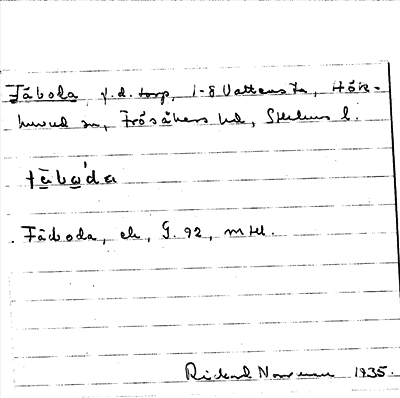 Fäboda, f.d. torp, 1-8 Vattensta, Hök-
huvud sn, Frösåkers hd, Sthlms l.
fä̀bω´da
Fäboda, ek, G. 92, mtl.
Rickard Norrman 1935.